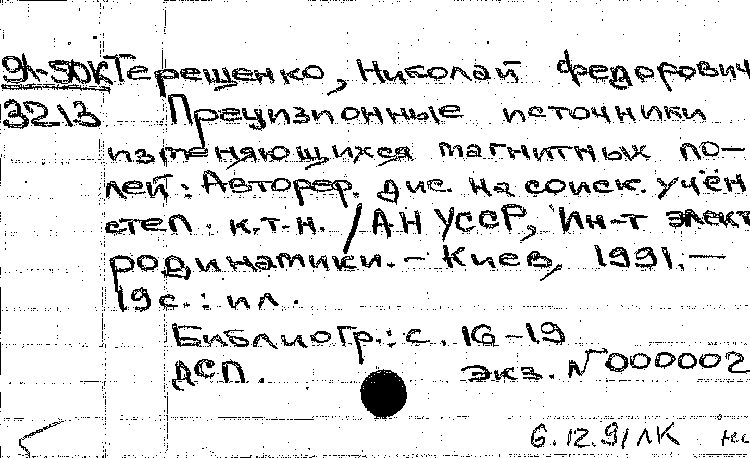 91-50К Терещенко, Николай Федорович
3213 Прецизионные источники
изменяющихся магнитных по-
лей: Автореф. дис. на соиск. учён
степ. к.т.н. / АН УССР, Ин-т элект
родинамики. - Киев, 1991. -
19 с.: ил.
Библиогр.: с. 16-19
ДСП. экз. N 000002
6.12.91 ЛК